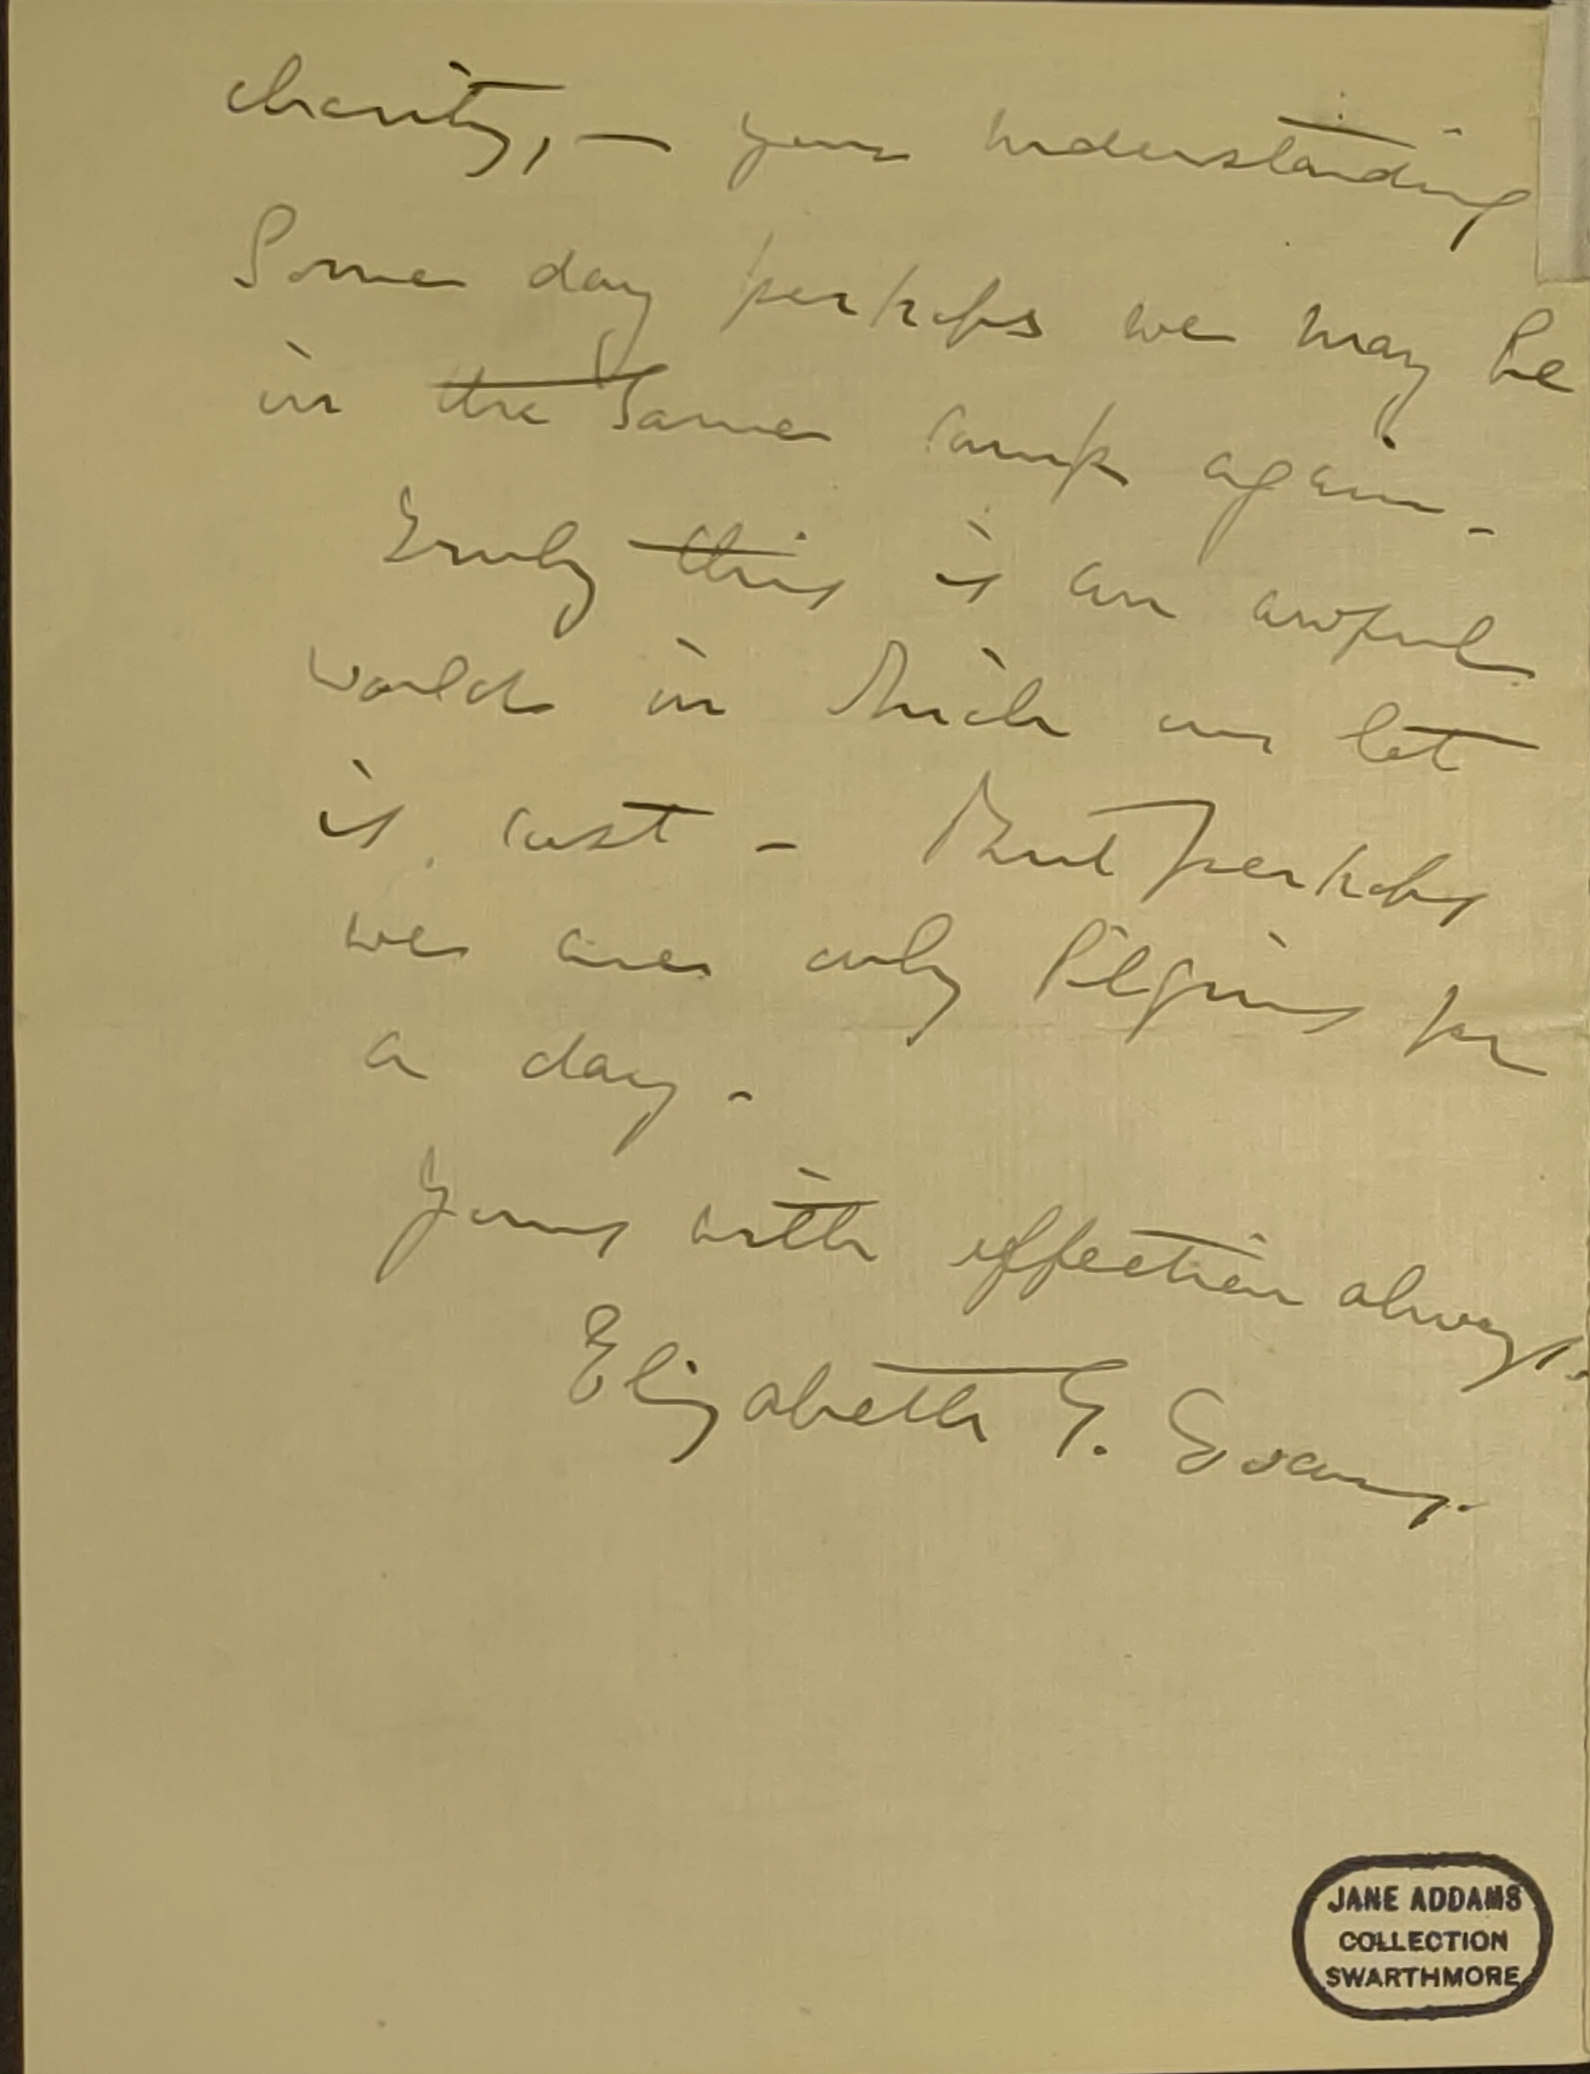 charity, — your understanding
Some day perhaps we may be
in the same camp again -
Truly this is an awful
world in which our lot
is cast - But perhaps
we are only Pilgrims for
a day -
Yours with affection always.
Elizabeth G. Evans.
JANE ADDAMS
COLLECTION
SWARTHMORE